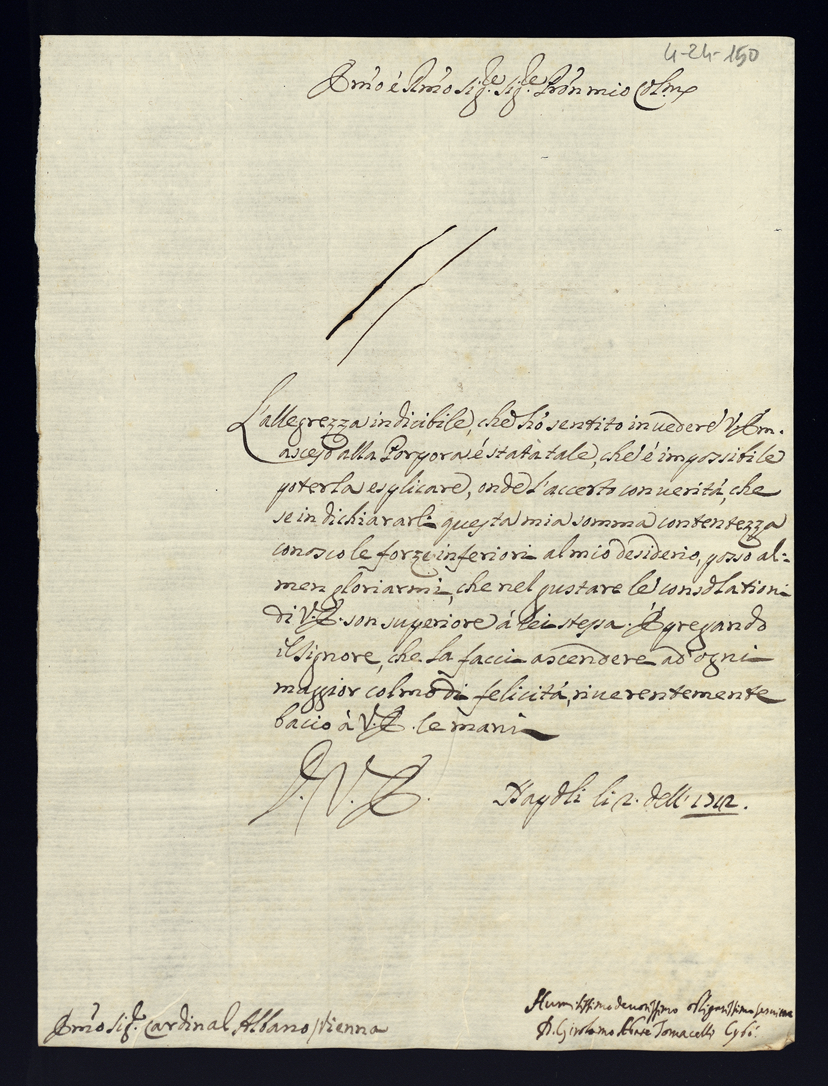 4-24-150
Em̃o é Rm̃o Sig.re Sig.re Prõn mio Col.mo
L'allegrezza indicibile, che hò sentito in uedere V.Em.
asceso alla Porpora é stata tale, che é impossibile
poterla esplicare, onde l'accerto con uerità, che
se in dichiararli questa mia somma contentezza
conosco le forze inferiori al mio desiderio, posso al=
men gloriarmi, che nel gustare le consolationi
di V.E. son superiore á lei stessa. E pregando
il Signore, che la facci ascendere ad ogni
maggior colmo di felicità, riuerentemente
bacio à V.E. le mani
D. V. E.
Napoli li 2. dell' 1712.
Em̃o Sig.r Cardinal Albano / Vienna
Humilissimo deuotissimo obligatissimo
D. Girolamo Tomacelli Cybò